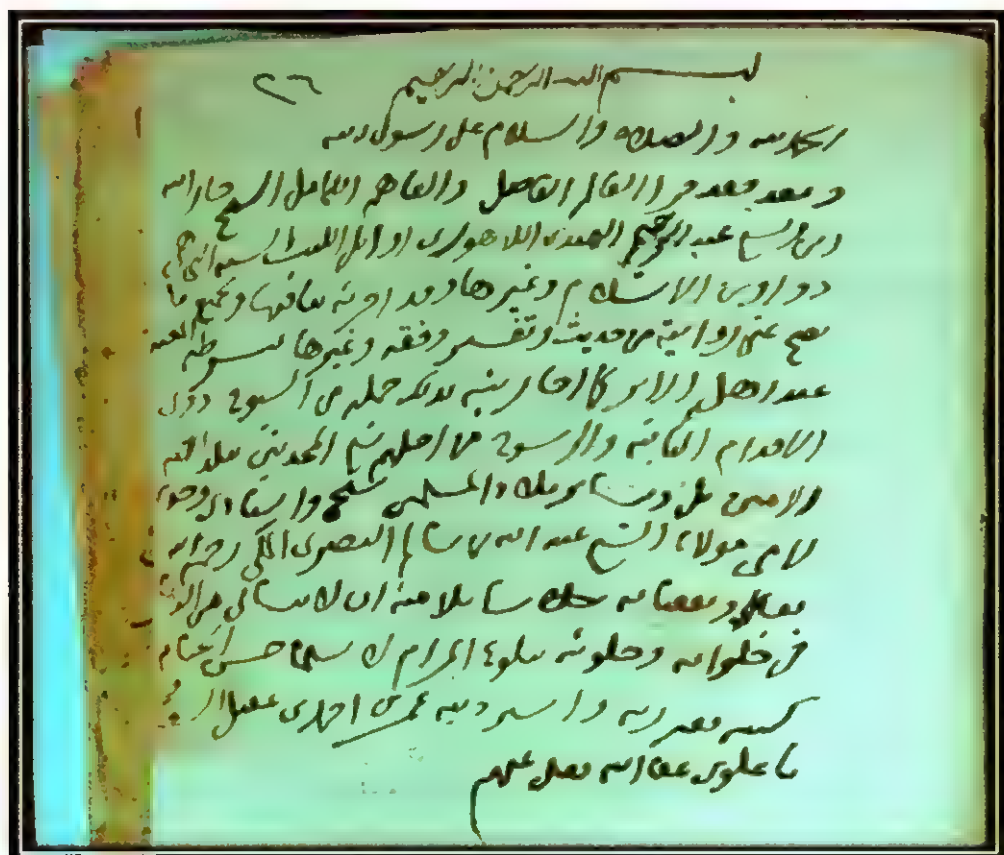 بسم الله الرحمن الرحيم
٢٦
الحمد لله والصلاة والسلام على رسول الله
وبعد فقد قرأ العالم الفاضل والفاهم الكامل الشيخ جار الله
بن الشيخ عبد الرحيم الهندي اللاهوري اوائل الكتب الستة التي هي
دواوين الاسلام وغيرها وقد اجزته بباقيها وبجميع ما
يصح عني روايته من حديث وتفسير وفقه وغيرها بشرطه المعتبر
عند اهل الاثر كما اجازني بذلك جملة من الشيوخ ذوي
الاقدام الثابتة والرسوخ من اجلهم المحدثين ببلد الله
الامين بل وسائر بلاد المسلمين شيخي واستاذي
لامي مولانا الشيخ عبد الله بن سالم البصري المكي رحمه الله
تعالى ان لا ينساني من
في خلواته وجلواته ببلوغ المرام لا سيما حسن الختام
كتبه فقير ربه واسير ذنبه عمر بن احمد بن عقيل
با علوي عفا الله تعالى عنهم